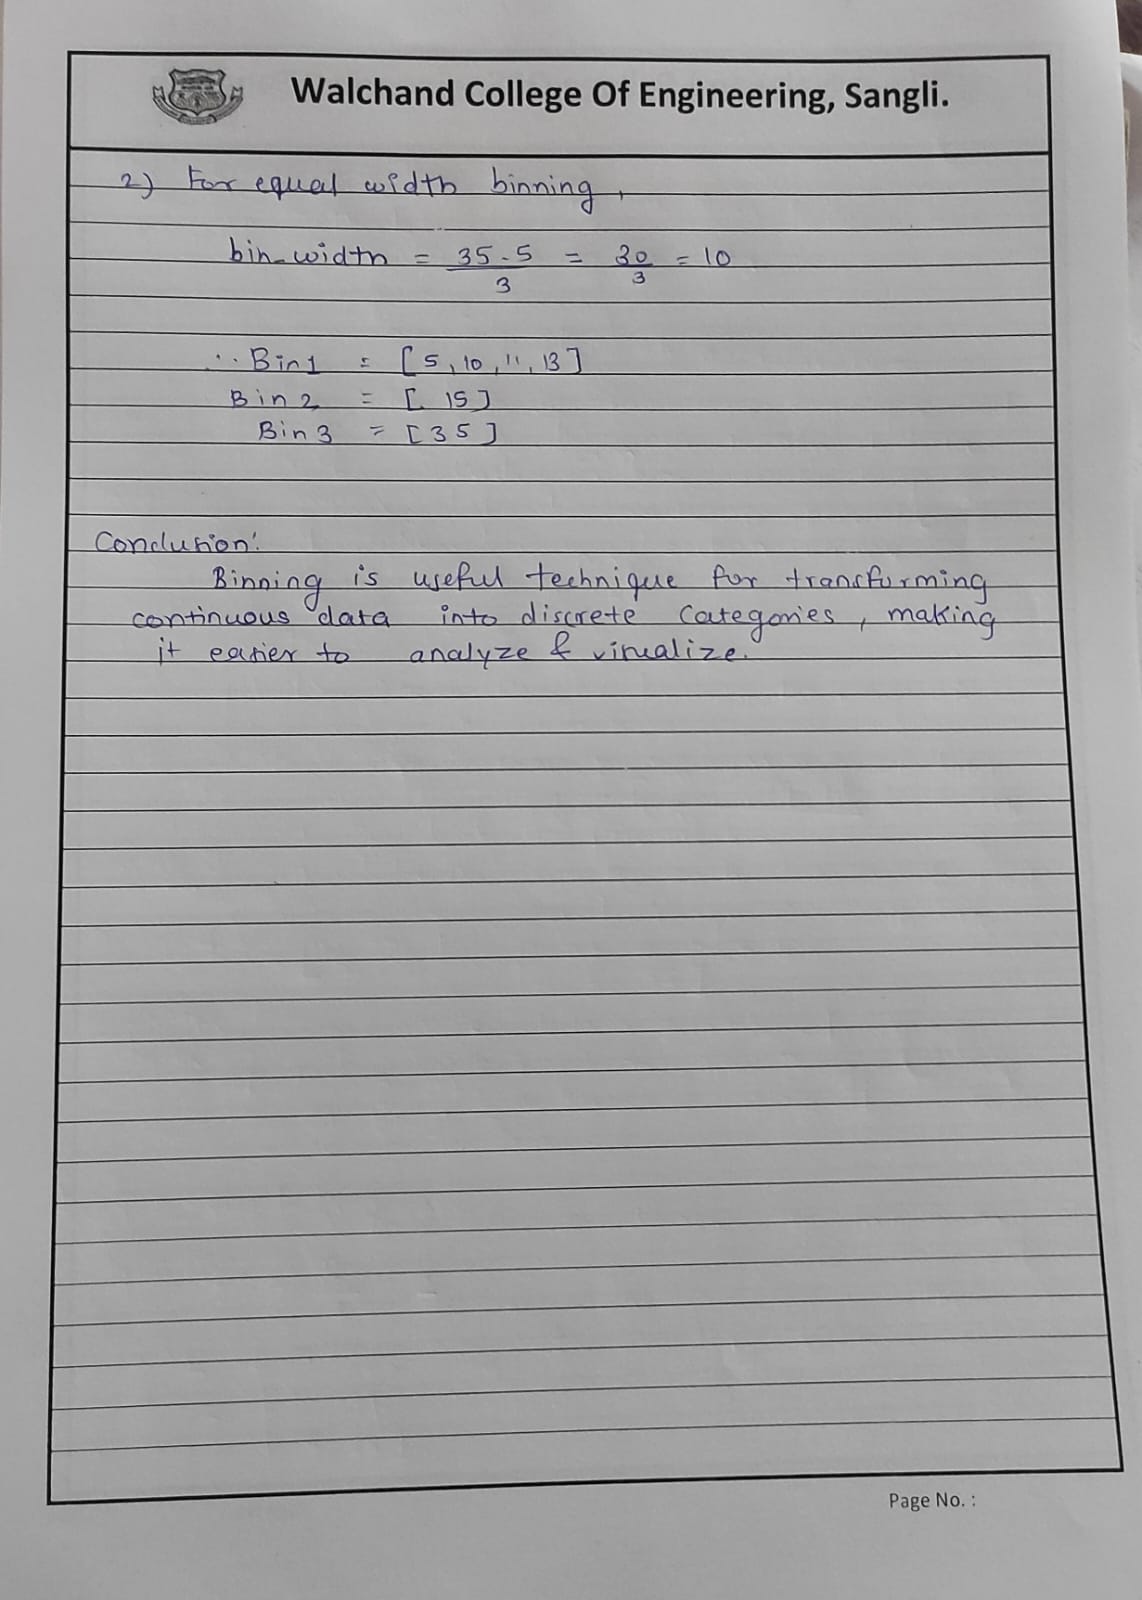 Walchand College Of Engineering, Sangli.
2) For equal width binning,
bin_width = 35-5 / 3 = 30 / 3 = 10
∴ Bin1 = [5, 10, 11, 13]
Bin 2 = [ 15]
Bin 3 = [35]
Conclusion:
Binning is useful technique for transforming
continuous data into discrete categories, making
it easier to analyze & visualize.
Page No. :